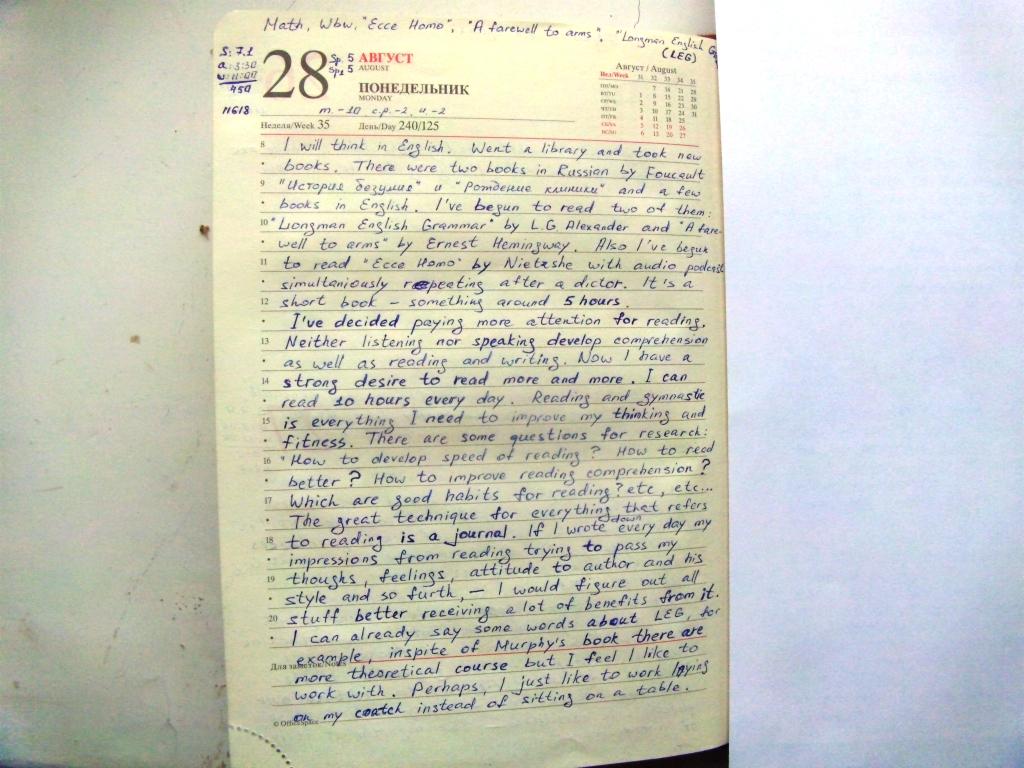 Math, Wbw, "Ecce Homo", "A farewell to arms", "Longman English
(LEG)
S: 7.1
a: 3:30
w: 11:00
450
11618
28
Sp. 5
Sp2 5
АВГУСТ
AUGUST
ПОНЕДЕЛЬНИК
MONDAY
m. -10 c.p. -2, u. -2
Неделя/Week 35 День/Day 240/125
Август / August
Нед/Week 31 32 33 34 35
ПН/MO 7 14 21 28
ВТ/TU 1 8 15 22 29
СР/WE 2 9 16 23 30
ЧТ/TH 3 10 17 24 31
ПТ/FR 4 11 18 25
СБ/SA 5 12 19 26
ВС/SU 6 13 20 27
8 I will think in English. Went a library and took new
books. There were two books in Russian by Foucault
9 "История безумия" и "Рождение клиники" and a few
books in English. I've begun to read two of them:
10 "Longman English Grammar" by L.G. Alexander and "A fare-
well to arms" by Ernest Hemingway. Also I've begun
11 to read "Ecce Homo" by Nietzshe with audio podcast
simultaniously repeating after a dictor. It is a
12 short book – something around 5 hours.
I've decided paying more attention for reading.
13 Neither listening nor speaking develop comprehension
as well as reading and writing. Now I have a
14 strong desire to read more and more. I can
read 10 hours every day. Reading and gymnastic
15 is everything I need to improve my thinking and
fitness. There are some questions for research:
16 "How to develop speed of reading? How to read
better? How to improve reading comprehension?
17 Which are good habits for reading? etc, etc...
The great technique for everything that refers
18 to reading is a journal. If I wrote down every day my
impressions from reading trying to pass my
19 thoughs, feelings, attitude to author and his
style and so furth, – I would figure out all
20 stuff better receiving a lot of benefits from it.
I can already say some words about LEG, for
example, inspite of Murphy's book there are
Для заметок/Notes
more theoretical course but I feel I like to
work with. Perhaps, I just like to work laying
on my coatch instead of sitting on a table.
© OfficeSpace